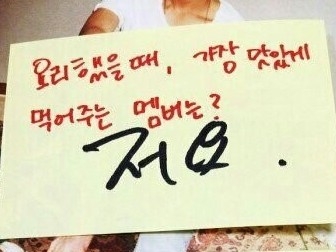 요리했을때, 가장 맛있게
먹어주는 멤버는?
저요.